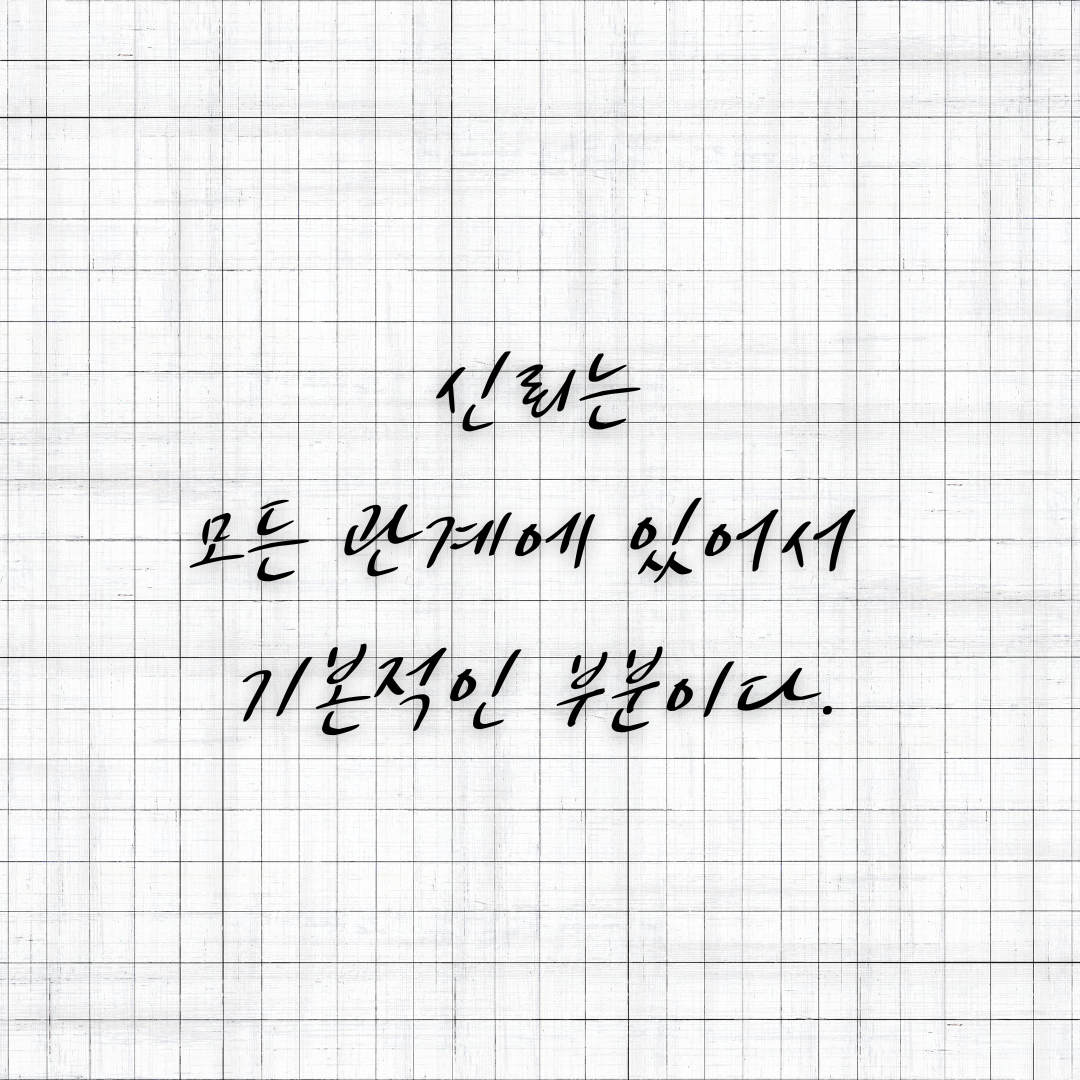 신뢰는
모든 관계에 있어서
기본적인 부분이다.